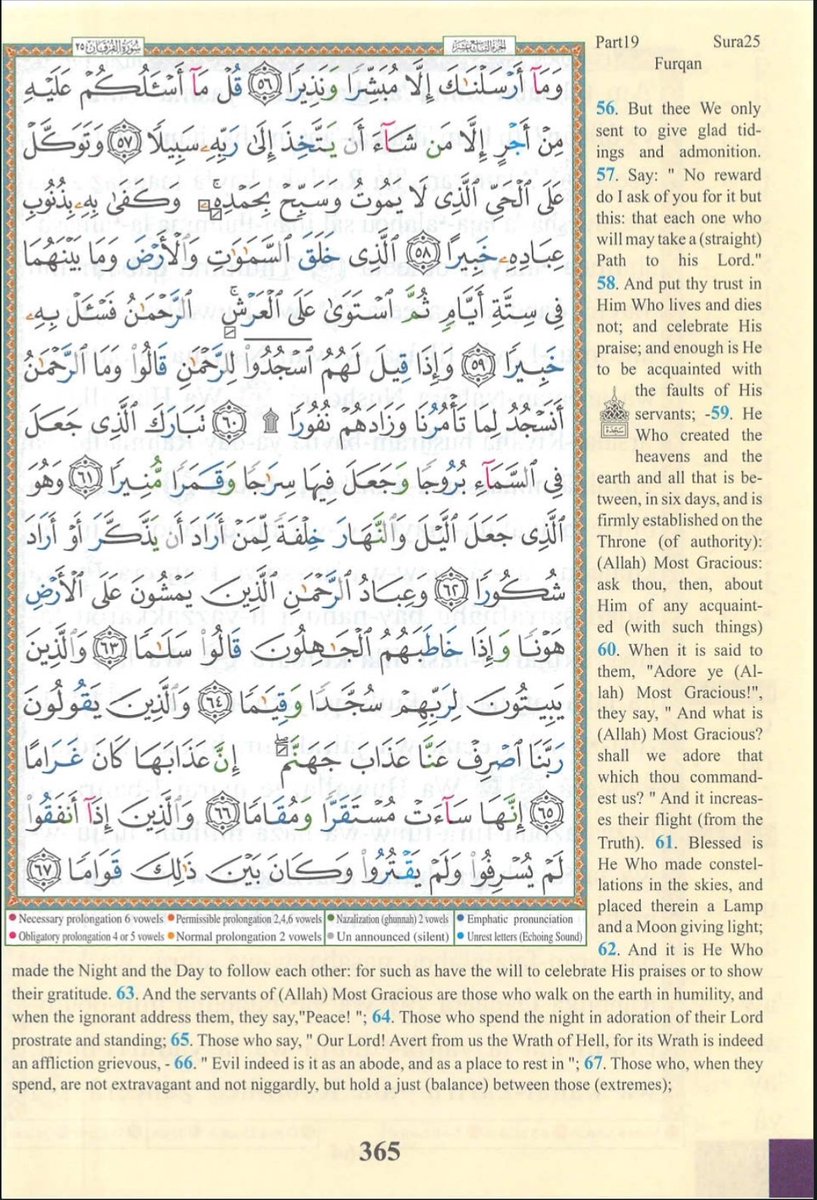 سُورَةُ الْفُرْقَانِ ٢٥
الجزء التاسع عشر
Part19 Sura25
Furqan
وَمَآ أَرْسَلْنَٰكَ إِلَّا مُبَشِّرًا وَنَذِيرًا ٥٦ قُلْ مَآ أَسْـَٔلُكُمْ عَلَيْهِ
مِنْ أَجْرٍ إِلَّا مَن شَآءَ أَن يَتَّخِذَ إِلَىٰ رَبِّهِۦ سَبِيلًا ٥٧ وَتَوَكَّلْ
عَلَى ٱلْحَىِّ ٱلَّذِى لَا يَمُوتُ وَسَبِّحْ بِحَمْدِهِۦ ۚ وَكَفَىٰ بِهِۦ بِذُنُوبِ
عِبَادِهِۦ خَبِيرًا ٥٨ ٱلَّذِى خَلَقَ ٱلسَّمَٰوَٰتِ وَٱلْأَرْضَ وَمَا بَيْنَهُمَا
فِى سِتَّةِ أَيَّامٍ ثُمَّ ٱسْتَوَىٰ عَلَى ٱلْعَرْشِ ۚ ٱلرَّحْمَٰنُ فَسْـَٔلْ بِهِۦ
خَبِيرًا ٥٩ وَإِذَا قِيلَ لَهُمُ ٱسْجُدُوا۟ لِلرَّحْمَٰنِ قَالُوا۟ وَمَا ٱلرَّحْمَٰنُ
أَنَسْجُدُ لِمَا تَأْمُرُنَا وَزَادَهُمْ نُفُورًا ۩ ٦٠ تَبَارَكَ ٱلَّذِى جَعَلَ
فِى ٱلسَّمَآءِ بُرُوجًا وَجَعَلَ فِيهَا سِرَٰجًا وَقَمَرًا مُّنِيرًا ٦١ وَهُوَ
ٱلَّذِى جَعَلَ ٱلَّيْلَ وَٱلنَّهَارَ خِلْفَةً لِّمَنْ أَرَادَ أَن يَذَّكَّرَ أَوْ أَرَادَ
شُكُورًا ٦٢ وَعِبَادُ ٱلرَّحْمَٰنِ ٱلَّذِينَ يَمْشُونَ عَلَى ٱلْأَرْضِ
هَوْنًا وَإِذَا خَاطَبَهُمُ ٱلْجَٰهِلُونَ قَالُوا۟ سَلَٰمًا ٦٣ وَٱلَّذِينَ
يَبِيتُونَ لِرَبِّهِمْ سُجَّدًا وَقِيَٰمًا ٦٤ وَٱلَّذِينَ يَقُولُونَ
رَبَّنَا ٱصْرِفْ عَنَّا عَذَابَ جَهَنَّمَ ۖ إِنَّ عَذَابَهَا كَانَ غَرَامًا
٦٥ إِنَّهَا سَآءَتْ مُسْتَقَرًّا وَمُقَامًا ٦٦ وَٱلَّذِينَ إِذَآ أَنفَقُوا۟
لَمْ يُسْرِفُوا۟ وَلَمْ يَقْتُرُوا۟ وَكَانَ بَيْنَ ذَٰلِكَ قَوَامًا ٦٧
• Necessary prolongation 6 vowels • Permissible prolongation 2,4,6 vowels • Nazalization (ghunnah) 2 vowels • Emphatic pronunciation
• Obligatory prolongation 4 or 5 vowels • Normal prolongation 2 vowels • Un announced (silent) • Unrest letters (Echoing Sound)
56. But thee We only
sent to give glad tid-
ings and admonition.
57. Say: " No reward
do I ask of you for it but
this: that each one who
will may take a (straight)
Path to his Lord."
58. And put thy trust in
Him Who lives and dies
not; and celebrate His
praise; and enough is He
to be acquainted with
the faults of His
servants; -59. He
سجدة
Who created the
heavens and the
earth and all that is be-
tween, in six days, and is
firmly established on the
Throne (of authority):
(Allah) Most Gracious:
ask thou, then, about
Him of any acquaint-
ed (with such things)
60. When it is said to
them, "Adore ye (Al-
lah) Most Gracious!",
they say, " And what is
(Allah) Most Gracious?
shall we adore that
which thou command-
est us? " And it increas-
es their flight (from the
Truth). 61. Blessed is
He Who made constel-
lations in the skies, and
placed therein a Lamp
and a Moon giving light;
62. And it is He Who
made the Night and the Day to follow each other: for such as have the will to celebrate His praises or to show
their gratitude. 63. And the servants of (Allah) Most Gracious are those who walk on the earth in humility, and
when the ignorant address them, they say,"Peace! "; 64. Those who spend the night in adoration of their Lord
prostrate and standing; 65. Those who say, " Our Lord! Avert from us the Wrath of Hell, for its Wrath is indeed
an affliction grievous, - 66. " Evil indeed is it as an abode, and as a place to rest in "; 67. Those who, when they
spend, are not extravagant and not niggardly, but hold a just (balance) between those (extremes);
365